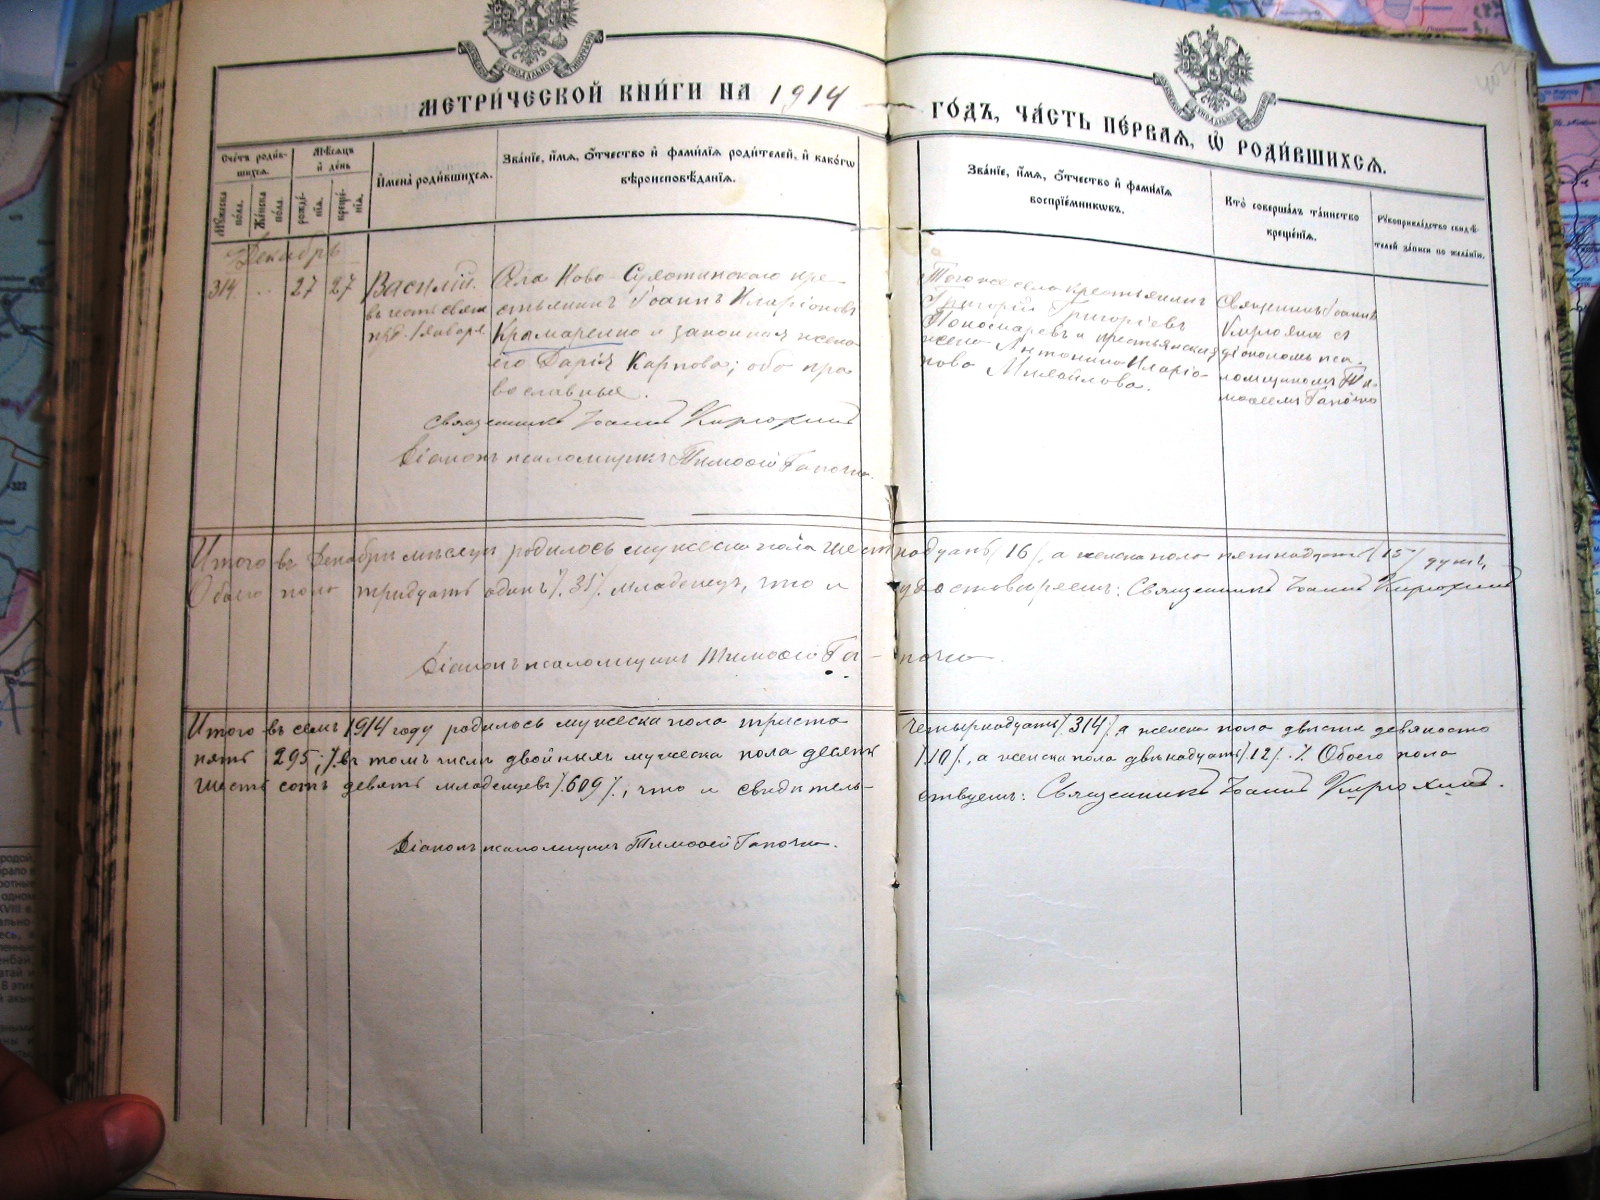 МЕТРИ́ЧЕСКОЙ КНИ́ГИ НА 1914
ГО́ДЪ, ЧА́СТЬ ПЕ́РВАЯ, Ѿ РОДИ́ВШИХСЯ.
Сче́тъ роди́в-
шихся.
Мѣ́сяцъ
и де́нь
Му́жеска
по́ла.
Же́нска
по́ла.
рожде́-
нія.
креще́-
нія.
Имена̀ роди́вшихся.
Зва́ніе, и́мя, о́тчество и фами́лія роди́телей, и како́гѡ
вѣроисповѣ́данія.
Зва́ніе, и́мя, о́тчество и фами́лія
воспріе́мникѡвъ.
Кто̀ соверша́лъ та́инство
креще́нія.
Рꙋкоприкла́дство свидѣ́-
телей за́писи по жела́нію.
Декабрь
314 .. 27 27 Василій.
въ честь свят.
прд. 1 января.
Села Ново-
стьянинъ Іоаннъ Иларіоновъ
Крамаренко и законная жена
его Дарія Карпова; оба пра-
вославные.
Священникъ Іоаннъ Кирюхинъ
Діаконъ псаломщикъ Тимоѳей Гапочка.
Того же села крестьянинъ
Григорій Григоріевъ
Пономаревъ и крестьянская
жена Антонина Иларіо-
нова Михайлова.
Священникъ Іоаннъ
Кирюхинъ съ
діакономъ пса-
ломщикомъ Ти-
моѳеемъ Гапочко
Итого въ Декабрѣ мѣсяцѣ родилось мужеска пола шестнадцать /16/, а женска пола пятнадцать /15/ душъ,
Обоего пола тридцать одинъ /.31/. младенецъ, что и удостовѣряемъ: Священникъ Іоаннъ Кирюхинъ
Діаконъ псаломщикъ Тимоѳей Га-почка.
Итого въ семъ 1914 году родилось мужеска пола триста четырнадцать /.314/., а женска пола двѣсти девяносто
пять 295; /.въ томъ числѣ двойныхъ мужеска пола десять /.10/., а женска пола двѣнадцать /.12/. /. Обоего пола
шестьсотъ девять младенцевъ /.609/., что и свидѣтель-ствуемъ: Священникъ Іоаннъ Кирюхинъ.
Діаконъ псаломщикъ Тимоѳей Гапочка.